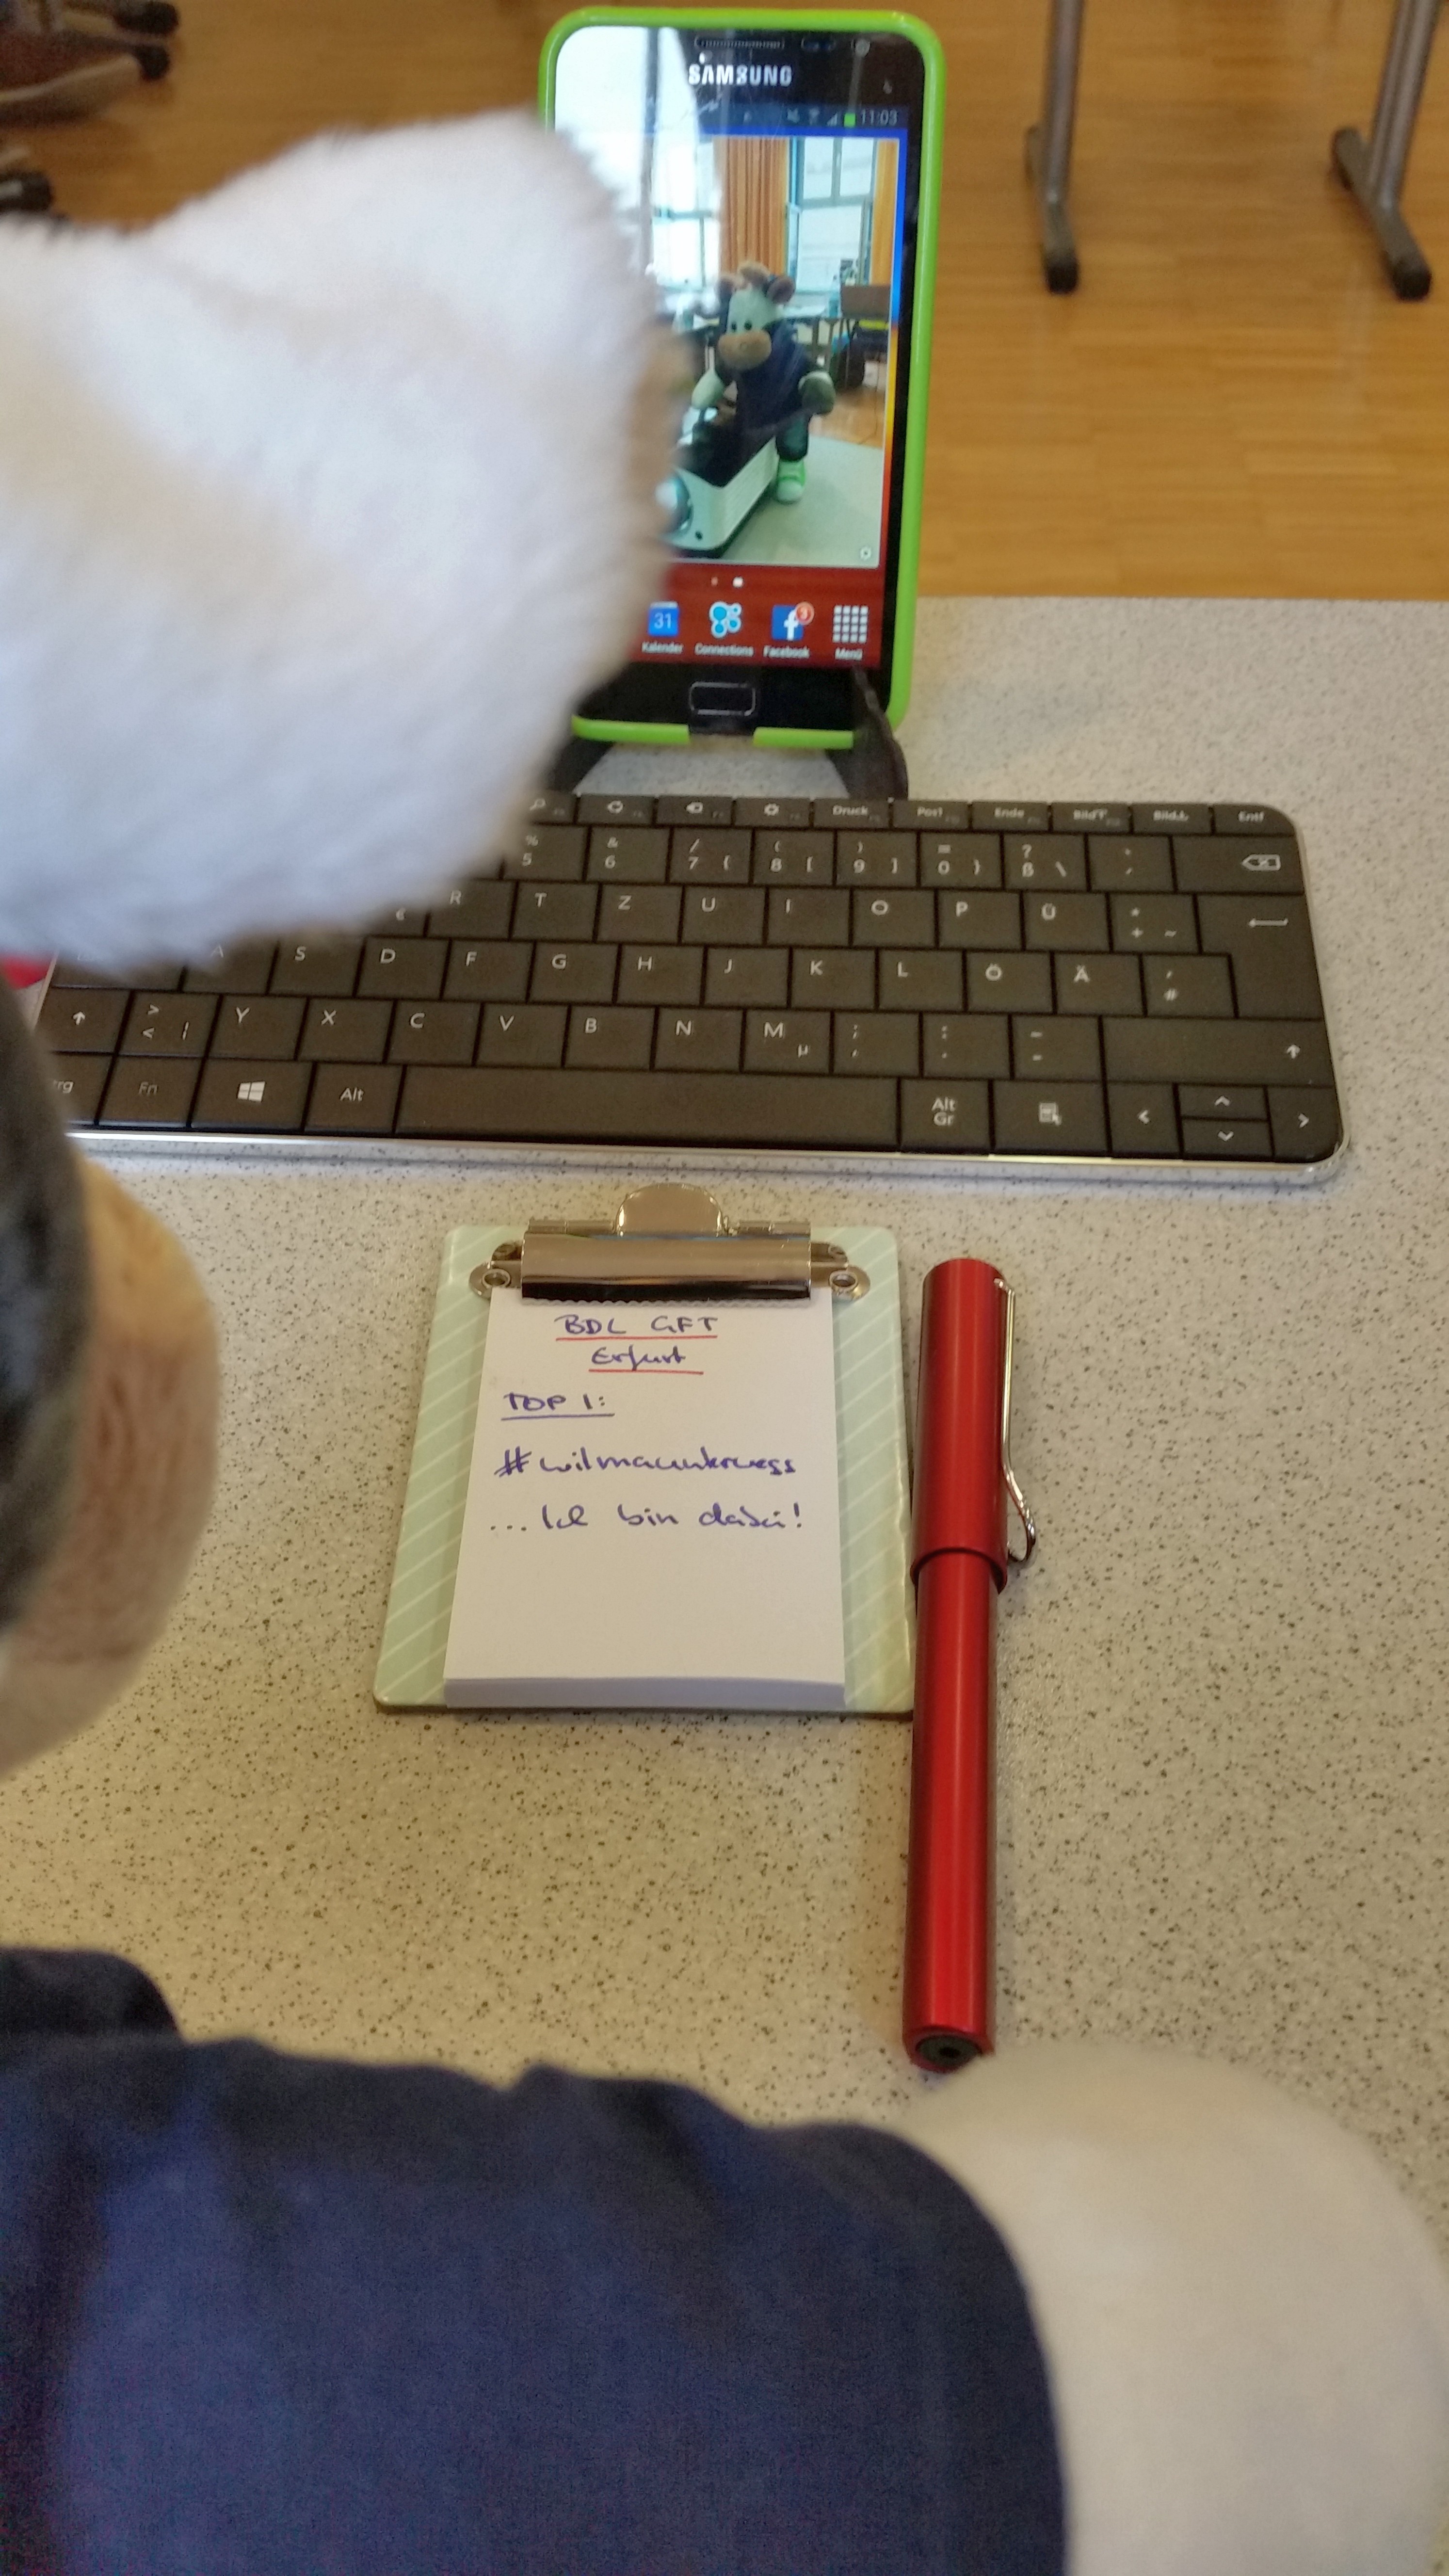 SAMSUNG
11:03
31
Kalender Connections Facebook Menü
3
Druck Pos1 Ende Bild↑ Bild↓ Entf
% & / ( ) = ?
5 6 7 { 8 [ 9 ] 0 } ß \
R T Z U I O P Ü * + ~
€
A S D F G H J K L Ö Ä ' #
> < | Y X C V B N M µ ; , : . _ -
Fn Alt Alt Gr
BDL GFT
Erfurt
TOP 1:
#wilmaunterwegs
... Ich bin dabei!